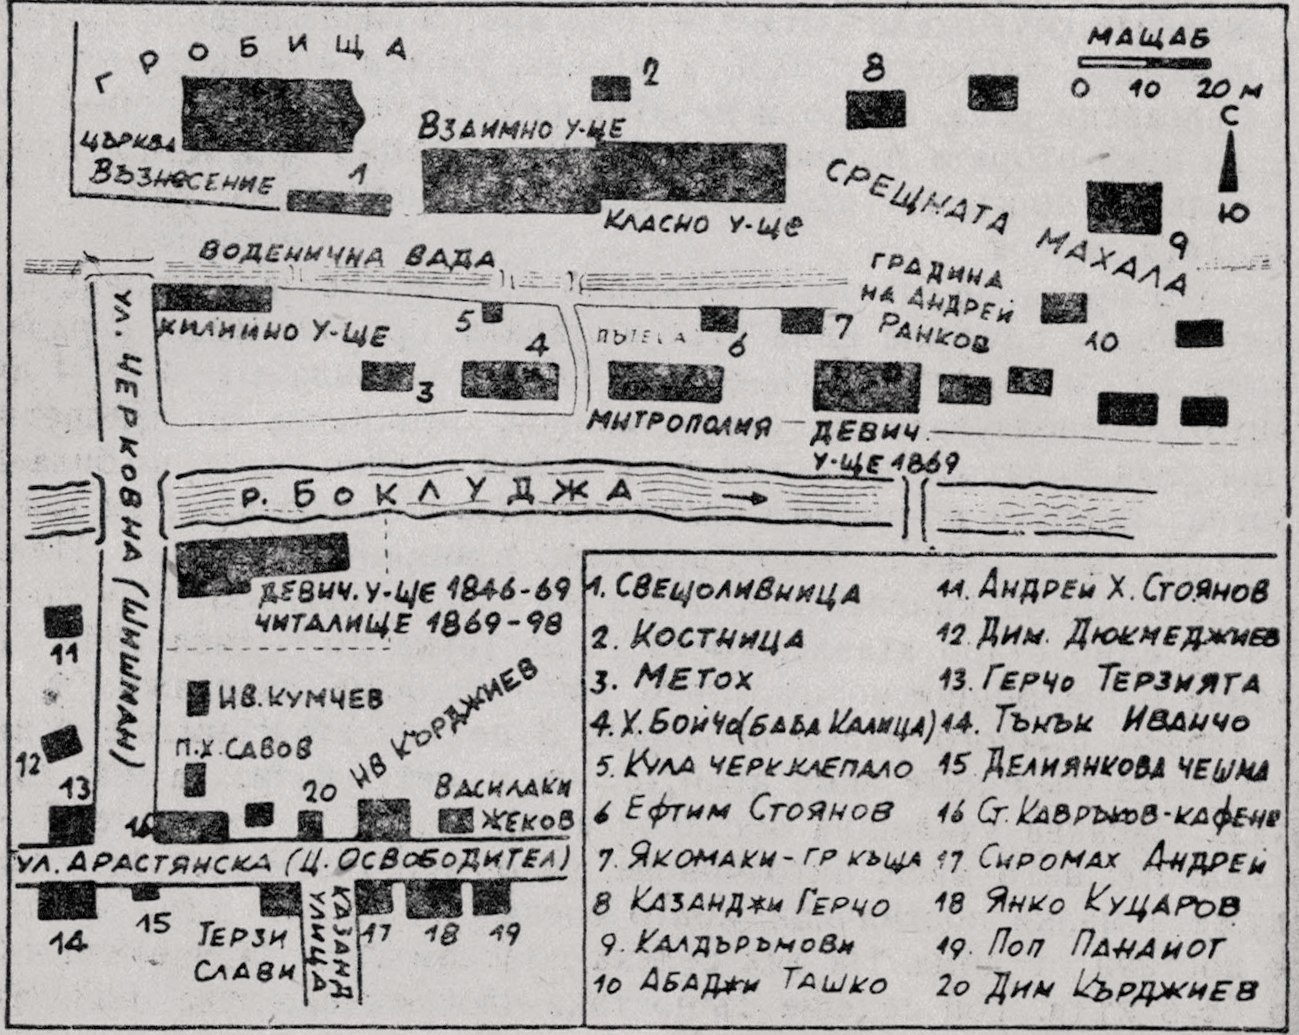 ГРОБИЩА
2
8
МАЩАБ
0 10 20 м
С
Ю
ЦЪРКВА
ВЪЗНЕСЕНИЕ
1
ВЗАИМНО У-ЩЕ
КЛАСНО У-ЩЕ
СРЕЩНАТА МАХАЛА
9
ВОДЕНИЧНА ВАДА
ГРАДИНА
НА АНДРЕЙ
РАНКОВ
КИЛИЙНО У-ЩЕ
5
4
3
ПЪТЕКА
6
7
10
МИТРОПОЛИЯ
ДЕВИЧ.
У-ЩЕ 1869
УЛ. ЧЕРКОВНА (ШИШМАН)
Р. БОКЛУДЖА
ДЕВИЧ. У-ЩЕ 1846-69
ЧИТАЛИЩЕ 1869-98
11
ИВ. КУМЧЕВ
П.Х. САВОВ
ИВ КЪРДЖИЕВ
12
13
16
20
ВАСИЛАКИ
ЖЕКОВ
УЛ. АРАСТЯНСКА (Ц. ОСВОБОДИТЕЛ)
14
15
ТЕРЗИ
СЛАВИ
КАЗАНД.
УЛИЦА
17
18
19
1. СВЕЩОЛИВНИЦА
2. КОСТНИЦА
3. МЕТОХ
4. Х. БОЙЧО (БАБА КАЛИЦА)
5. КУЛА ЧЕРК. КЛЕПАЛО
6 ЕФТИМ СТОЯНОВ
7. ЯКОМАКИ - ГР КЪЩА
8 КАЗАНДЖИ ГЕРЧО
9. КАЛДЪРЪМОВИ
10 АБАДЖИ ТАШКО
11. АНДРЕЙ Х. СТОЯНОВ
12. ДИМ. ДЮКМЕДЖИЕВ
13. ГЕРЧО ТЕРЗИЯТА
14. ТЪНЪК ИВАНЧО
15 ДЕЛИЯНКОВА ЧЕШМА
16 СТ. КАВРЪКОВ - КАФЕНЕ
17 СИРОМАХ АНДРЕЙ
18 ЯНКО КУЦАРОВ
19. ПОП ПАНАЙОТ
20 ДИМ КЪРДЖИЕВ